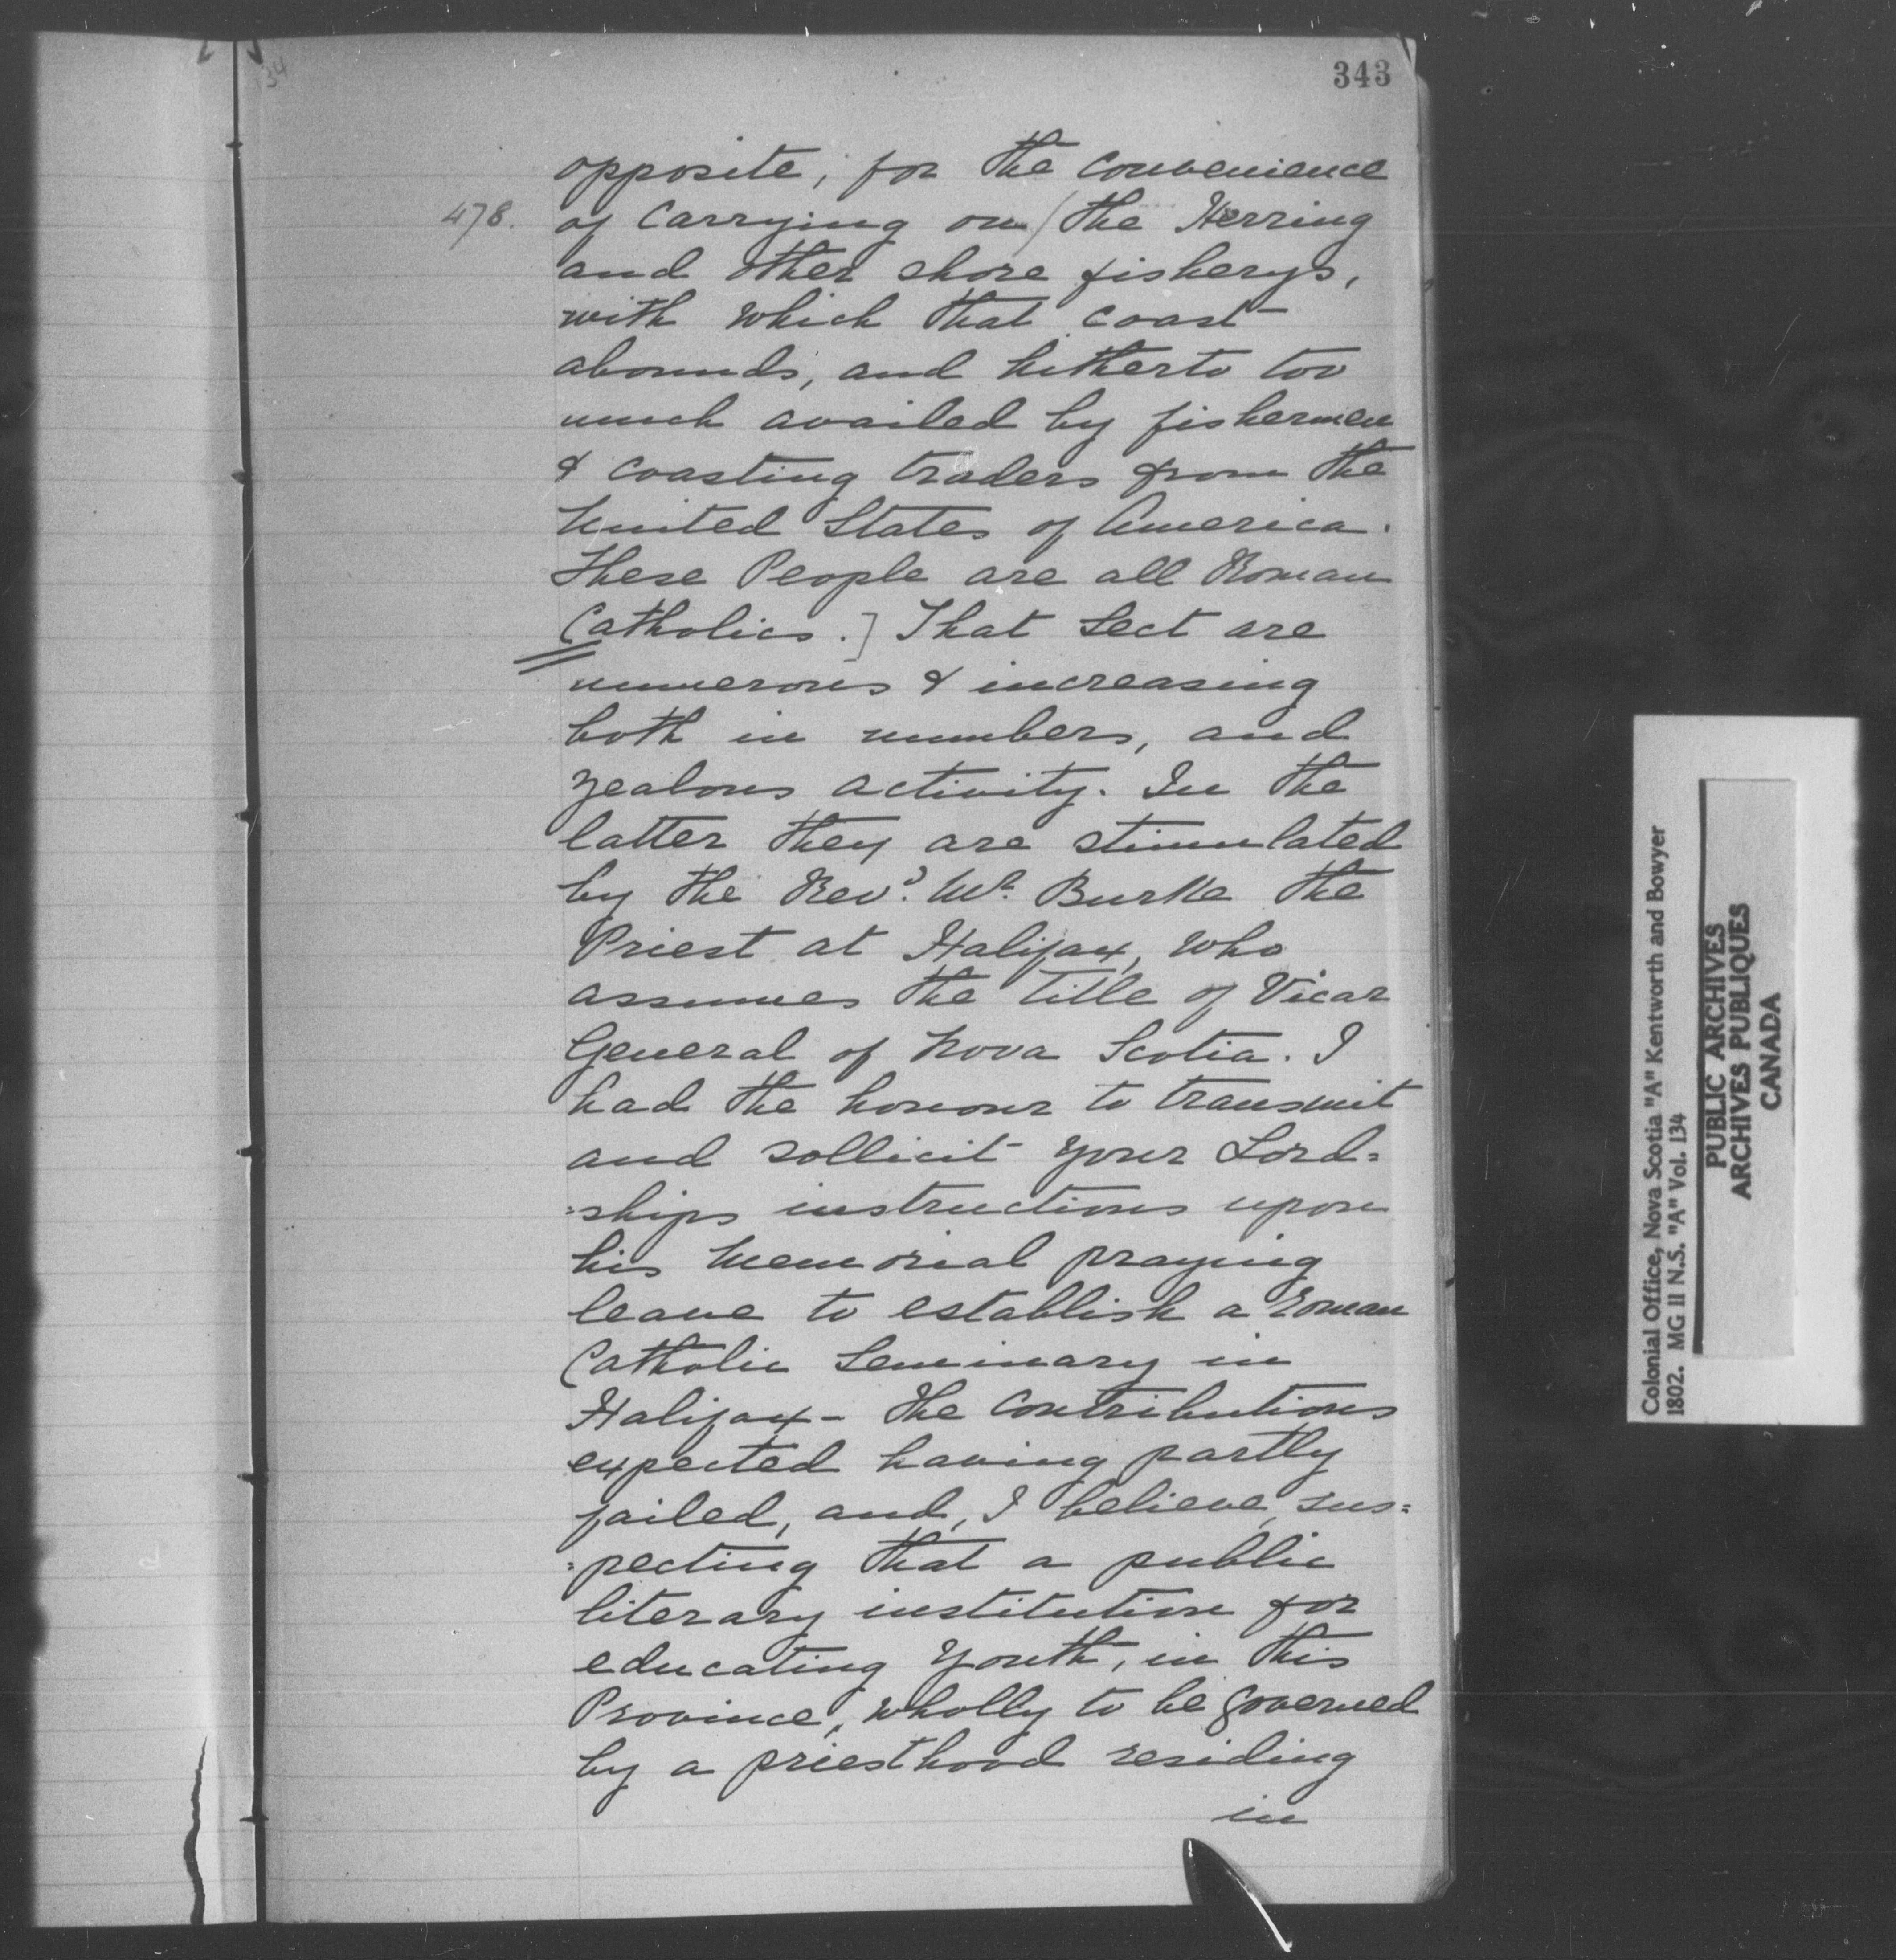 343
34
opposite, for the convenience
478. of Carrying on / the Herring
and other shore fisherys,
with which that coast
abounds, and hitherto too
much availed by fishermen
& coasting traders from the
United States of America.
These People are all Roman
Catholics.] That Sect are
numerous & increasing
both in numbers, and
zealous activity. In the
latter they are stimulated
by the Revd. Mr. Burke the
Priest at Halifax, who
assumes the title of Vicar
General of Nova Scotia. I
had the honour to transmit
and sollicit your Lord=
=ships instructions upon
his Memorial praying
leave to establish a Roman
Catholic Seminary in
Halifax - the Contributions
expected having partly
failed, and, I believe, sus=
=pecting that a public
literary institution for
educating Youth, in this
Province, wholly to be governed
by a priesthood residing
in
Colonial Office, Nova Scotia "A" Kentworth and Bowyer
1802. MG 11 N.S. "A" Vol. 134
PUBLIC ARCHIVES
ARCHIVES PUBLIQUES
CANADA